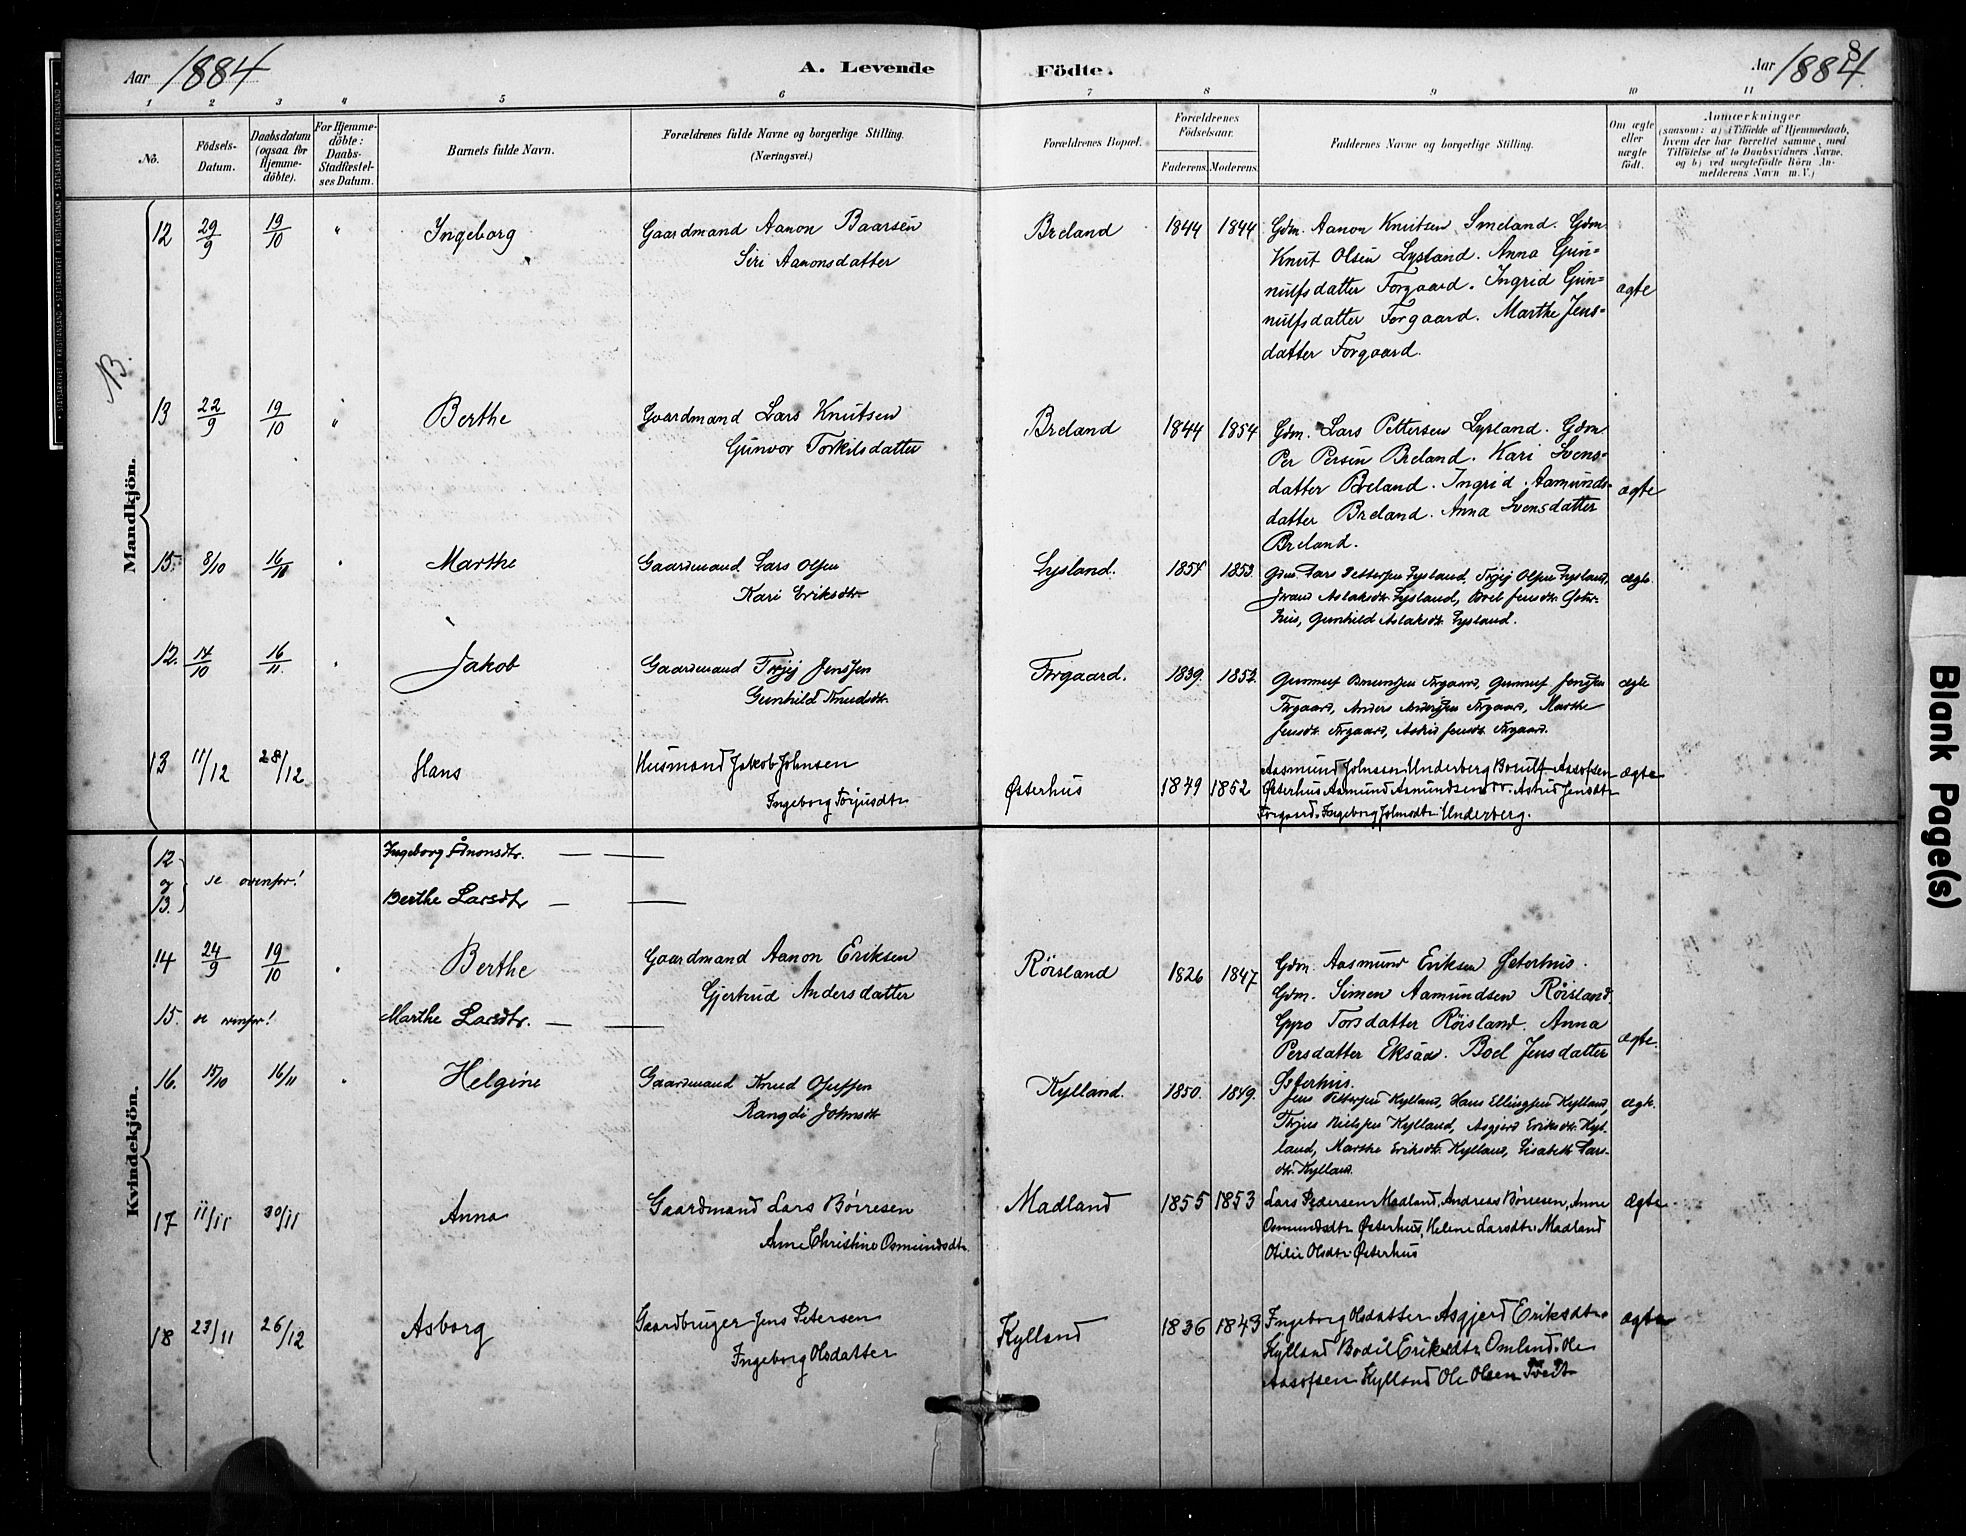 Aar 1884
A. Levende Födte.
Aar 1884
8
1 2 3 4 5 6 7 8 9 10 11
No.
Födsels-Datum.
Daabsdatum (ogsaa for Hjemme-döbte).
For Hjemme-döbte: Daabs-Stadfæstel-ses Datum.
Barnets fulde Navn.
Forældrenes fulde Navne og borgerlige Stilling.
(Næringsvei.)
Forældrenes Bopæl.
Forældrenes Födselsaar.
Faderens. Moderens.
Faddernes Navne og borgerlige Stilling.
Om ægte eller uægte födt.
Anmærkninger
(saasom: a) i Tilfælde af Hjemmedaab,
hvem der har forrettet samme, med
Tilföielse af to Daabsvidners Navne,
og b) ved uægtefödte Börn An-
melderens Navn m. V.)
Mandkjön.
NB.
12 29/9 19/10 " Ingeborg Gaardmand Aanon Baarsen
Siri Aanonsdatter
Breland 1844 1844 Gdm. Aanon Knutsen Smeland. Gdm
Knut Olsen Lysland. Anna Gun=
nulfsdatter Forgaard. Ingrid Gun=
nulfsdatter Forgaard. Marthe Jens=
datter Forgaard.
ægte
13 22/9 19/10 " Berthe Gaardmand Lars Knutsen
Gunvor Torkilsdatter
Breland 1844 1854 Gdm. Lars Pettersen Lysland. Gdm
Per Persen Breland. Kari Svens-
datter Breland. Ingrid Aamunds-
datter Breland. Anna Svensdatter
Breland.
ægte
15. 8/10 16/11 " Marthe Gaardmand Lars Olsen
Kari Eriksdtr.
Lysland. 1854 1853. Gdm. Lars Pettersen Lysland, Tejej Olsen Lysland,
Aslaksdtr. Lysland, Boel Jensdtr. Øster-
hus, Gunhild Aslaksdt. Lysland.
ægte.
12. 17/10 16/11. " Jakob Gaardmand Terjej Jensen
Gunhild Knudsdtr.
Forgaard. 1839. 1852. Gunnuf Forgaard, Gunnuf Jensen
Forgaard, Anders Andersen Forgaard, Marthe
Jensdt. Forgaard, Astrid Jensdt. Forgaard.
ægte
13 11/12 28/12 Hans Husmand Jakob Johnsen
Ingeborg Torjusdtr
Østerhus 1849 1852 Aasmund Johnsen Underberg Aasofsen
Østerhus Aasmund Aasmundsen Astrid Jensdtr
Forgaard. Ingeborg Johnsdtr Underberg.
ægte
Kvindekjön.
12 og 13. se ovenfor!
Ingeborg Ånonsdtr. — —
Berthe Larsdtr — —
14 24/9 19/10 " Berthe Gaardmand Aanon Eriksen
Gjertrud Andersdatter
Röisland 1826 1847 Gdm. Aasmund Eriksen Österhus.
Gdm. Simen Aamundsen Röisland
Gyro Torsdatter Röisland. Anna
Persdatter Eksaa. Boel Jensdatter
Österhus.
ægte.
15. se ovenfor! Marthe Larsdtr. — —
16. 15/10 16/11 " Helgine Gaardmand Knud
Rangdi Johnsdt
Kylland. 1850. 1849. Jens Pettersen Kylland, Hans Ellingsen Kylland,
Terjus Nielsen Kylland, Asgjerd Eriksdtr. Kyl-
land, Marthe Eriksdt. Kylland, Lisabeth Lars-
dtr. Kylland.
ægte.
17 11/11 30/11 Anna Gaardmand Lars Börresen
Anne Christine Osmundsdtr
Madland 1855 1853 Lars Pedersen Madland, Andreas Börresen, Anne
Osmundsdtr Østerhus, Helene Larsdtr Madland
Otilie Olsdtr Østerhus
Ægte
18 23/11 26/12 Asborg Gaardbruger Jens Petersen
Ingeborg Olsdatter
Kylland 1836 1843 Ingeborg Olsdatter Asgjerd Eriksdtr
Kylland Bodil Eriksdtr Omland. Ole
Aasofsen Kylland Ole Olsen Tveit
ægte
STATSARKIVET I KRISTIANSAND
Blank Page(s)